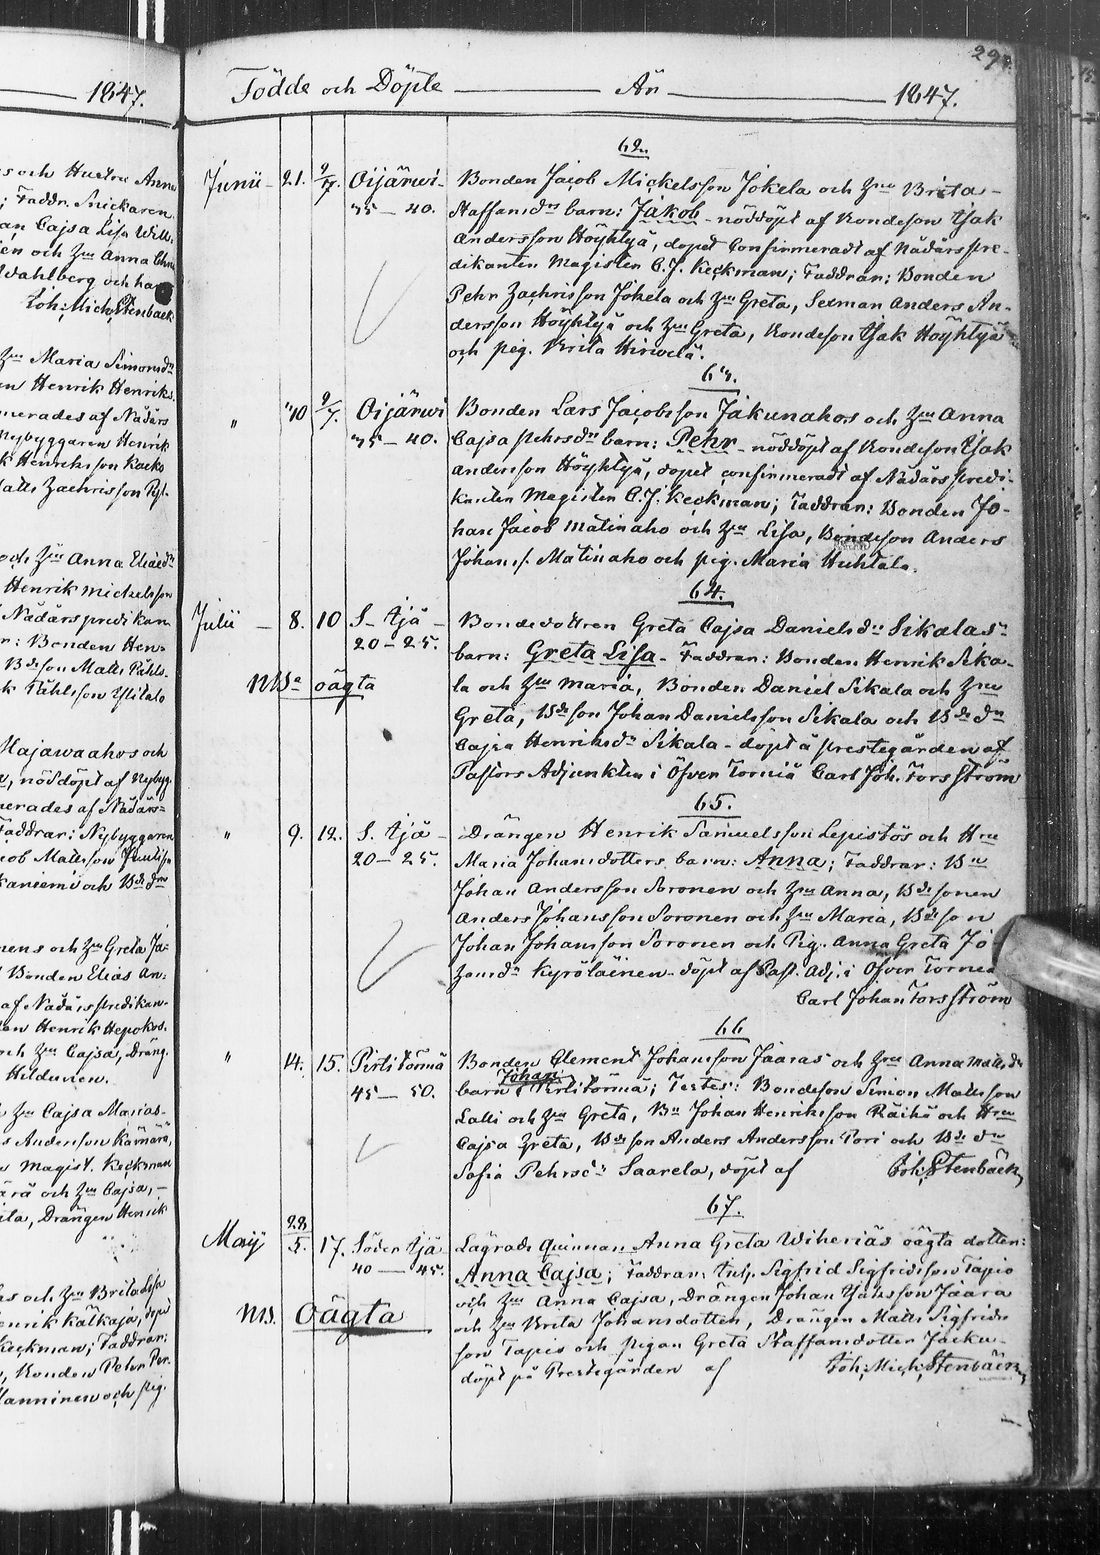 1847.
s och Hustru Anna
; Faddr. Snickaren
an Cajsa Lisa
en och Hu Anna
Wahlberg och ha
Joh: Mich: Stenbäck
Maria Simonsdr
en Henrik Henriks.
merades af Nådårs
Nybyggaren Henrik
k Henriksson
Matts Zachrisson
och Anna Eliaedr
Henrik Mickelsson
Nådårspredikan
r: Bonden Hen-
Bdeson Matts Pahls-
k Påhlsson Ylitalo
Majawaahos och
nöddöpt af Nybyg.
merades af Nådårs-
Faddrar: Nybyggaren
cob Mattsson
kaniemi och Bdedr
nens och Greta Ja-
Bonden Elias An-
af Nådårspredikan-
en Henrik Hepokos.
och Cajsa, Dräng.
Hildunen.
Cajsa Marias-
s Andersson Kämärä,
Magist. Keckman
ärä och Cajsa,
ila, Drängen Henrik
as och Brita Lisa
enrik Kälkäjä, döpt
Keckman; Faddrar;
Bonden Pehr Per.
Manninen och pig.
29
Födde och Döpte — År — 1847.
62.
Junii 21. 9/7. Oijärwi 35 — 40. Bonden Jacob Mickelsson Jokela och Brita
Staffansdrs barn: Jakob nöddöpt af Bondeson Isak
Andersson Höyhtyä, dopet Confirmeradt af Nådårspre-
dikanten Magisten C. J. Keckman; Faddrar: Bonden
Pehr Zachrisson Jokela och Greta, Sexman Anders An-
dersson Höyhtyä och Greta, Bondeson Isak Höyhtyä
och pig. Brita Hirwelä.
63.
" 9/7. Oijärwi 35 — 40. Bonden Lars Jacobsson Jakunahos och Anna
Cajsa Pehrsdrs barn: Pehr nöddöpt af Bondeson Isak
Andersson Höyhtyä, dopet confirmeradt af Nådårspredi-
kanten Magisten C. J. Keckman; Faddrar: Bonden Jo-
han Jacob Matinaho och Lisa, Bondeson Anders
Johans. Matinaho och pig. Maria Huhtala.
64.
Julii — 8. 10 S. Ijä 20 — 25. Bondedottren Greta Cajsa Danielsdr Sikalas
barn: Greta Lisa. Faddrar: Bonden Henrik Sika-
NB. oägta la och Maria, Bonden Daniel Sikala och
Greta, Bdeson Johan Danielsson Sikala och Bdedr
Cajsa Henriksdr Sikala - döpt å prestegården af
Pastors Adjunkten i Öfver Torniå Carl Joh. Forsström
65.
" 9. 12. S. Ijä 20 — 25. Drängen Henrik Samuelsson Lepistös och Hru
Maria Johansdotters barn: Anna; Faddrar: Bn
Johan Andersson Soronen och Anna, Bdesonen
Anders Johansson Soronen och Maria, Bdeson
Johan Johansson Soronen och Pig. Anna Greta Jo-
Kyröläinen döpt af Past. Adj. i Öfver Torneå
Carl Johan Forsström
66
" 14. 15. Pirttitörmä 45 — 50. Bonden Clement Johansson Jaaras och Anna Mattsdr
barn Johan i Pirttitörmä; Testes: Bondeson Simon Mattsson
Lalli och Greta, Bn Johan Henriksson Räihä och Hru
Cajsa Greta, Bdeson Anders Andersson Pori och Bdedr
Sofia Pehrsdr Saarela, döpt af Joh: Stenbäck
67.
Maij 28/5. 17. Söder Ijä 40 — 45. Lägrade Quinnan Anna Greta Wiheriäs oägta dotter:
Anna Cajsa; Faddrar: Inh. Sigfrid Sigfridsson Tapio
NB. Oägta och Anna Cajsa, Drängen Johan Johansson Jaara
och Brita Johansdotter, Drängen Matts Sigfrids-
son Tapio och pigan Greta Staffansdotter
döpt på Prestegården af Joh: Mich: Stenbäck